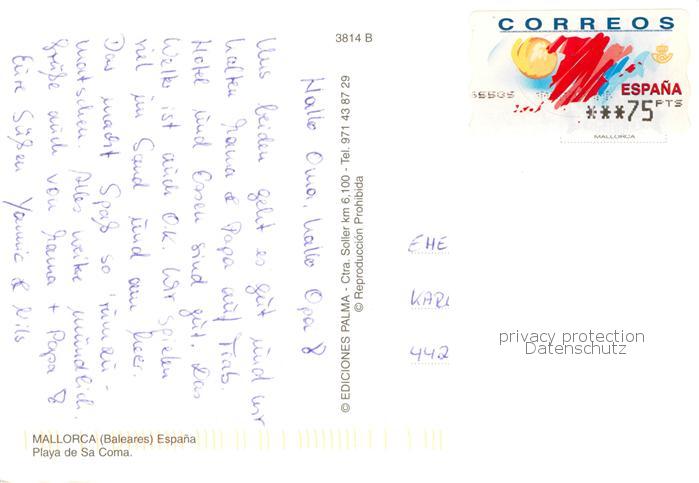 Hallo Oma, hallo Opa &
Uns beiden geht es gut und wir
halten Mama & Papa auf Trab.
Hotel und Essen sind gut. Das
Wetter ist auch O.K. Wir spielen
viel im Sand und am Meer.
Das macht Spaß so 'rumzu-
matschen. Alles weitere mündlich.
Grüße auch von Mama + Papa &
Eure Süßen Yannic & Nils
MALLORCA (Baleares) España
Playa de Sa Coma.
3814 B
© EDICIONES PALMA - Ctra. Soller km 6,100 - Tel. 971 43 87 29
© Reproducción Prohibida
CORREOS
ESPAÑA
***75 PTS
MALLORCA
EHE
KARL
442
privacy protection
Datenschutz